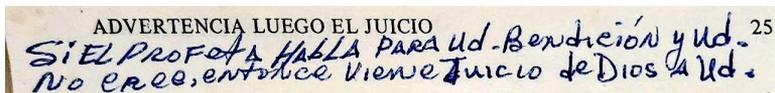 ADVERTENCIA LUEGO EL JUICIO 25
Si EL PROFetA HABLA PARA Ud. Bendición y Ud.
No cree, entonce Viene Juicio de Dios A Ud.